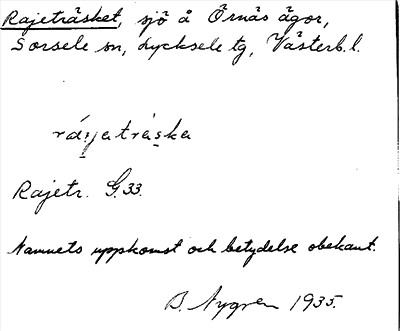 Rajeträsket, sjö å Örnäs ägor,
Sorsele sn, Lycksele tg, Västerb. l.
rá:jatràska
Rajetr. G. 33.
Namnets uppkomst och betydelse obekant.
B. Nygren 1935.